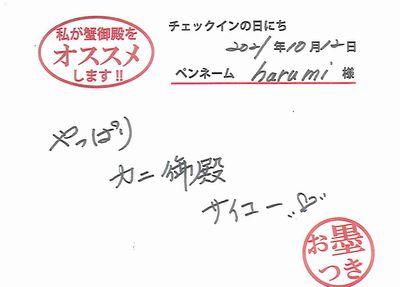 私が蟹御殿を
オススメ
します!!
チェックインの日にち
2021年10月12日
ペンネーム harumi 様
やっぱり
カニ御殿
サイコー
お墨
つき